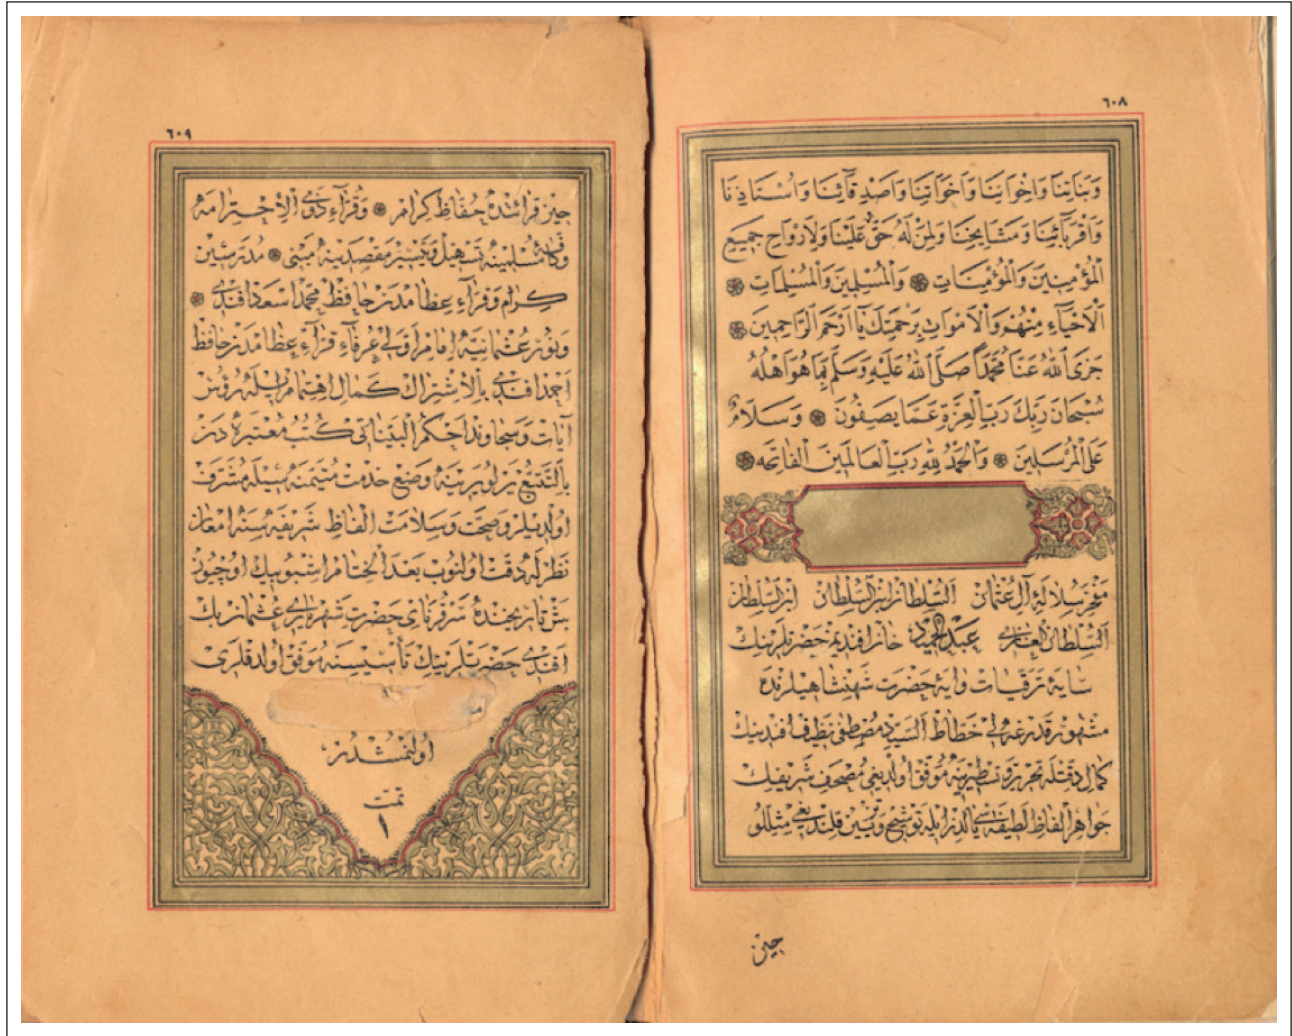 ٦٠٨
وَبَنَاتِنَا وَاِخْوَانِنَا وَاَخَوَاتِنَا وَاَصْدِقَآئِنَا وَاُسْتَاذِنَا
وَاَقْرِبَآئِنَا وَمَشَايِخِنَا وَلِمَنْ لَهُ حَقٌّ عَلَيْنَا وَلِاَرْوَاحِ جَمِيعِ
الْمُؤْمِنِينَ وَالْمُؤْمِنَاتِ ❁ وَالْمُسْلِمِينَ وَالْمُسْلِمَاتِ ❁
اَلْاَحْيَآءِ مِنْهُمْ وَالْاَمْوَاتِ بِرَحْمَتِكَ يَا اَرْحَمَ الرَّاحِمِينَ ❁
جَزَى اللهُ عَنَّا مُحَمَّدًا صَلَّى اللهُ عَلَيْهِ وَسَلَّمَ بِمَا هُوَ اَهْلُهُ
سُبْحَانَ رَبِّكَ رَبِّ الْعِزَّةِ عَمَّا يَصِفُونَ ❁ وَسَلَامٌ
عَلَى الْمُرْسَلِينَ ❁ وَالْحَمْدُ لِلّٰهِ رَبِّ الْعَالَمِينَ الْفَاتِحَه ❁
مفخر سلاله آل عثمان السلطان ابن السلطان ابن السلطان
السلطان الغازى عبد الحميد خان افنديمز حضرتلرينك
سايهٔ ترقيات وايهٔ حضرت شهنشاهيلرنده
مشهور قدرغه لى خطاط السيد مصطفى نظيف افندينك
كمال دقتله تحرير و تنظيرينه موفق اولديغى مصحف شريفك
جواهر الفاظ لطيفه سى يالديز ايله توشيح وتزيين قلنديغى مثللو
حين
٦٠٩
حين قرائتده حفاظ كرام ❁ وقراء ذوى الاحترامه
وكافهٔ مسلمينه تسهيل وتيسير مقصدينه مبنى ❁ مدرسين
كرام وقراء عظامدن حافظ محمد اسعد افندى ❁
ونور عثمانيه امام اولى عرفاء قراء عظامدن حافظ
احمد افندى بالاشتراك كمال اهتمام ايله رؤس
آيات وسجاوند احكم البيناتى كتب معتبره دن
بالتتبع يرلو يرينه وضع خدمت متيمنه سيله مشرف
اولديلر وصحت وسلامت الفاظ شريفه سنه امعان
نظر له دقت اولنوب بعد الختام اشبو بيك اوچيوز
بش تاريخنده سرقرناى حضرت شهريارى عثمان بك
افندى حضرتلرينك تأسيسنه موفق اولدقلرى
اولنمشدر
تمت
١